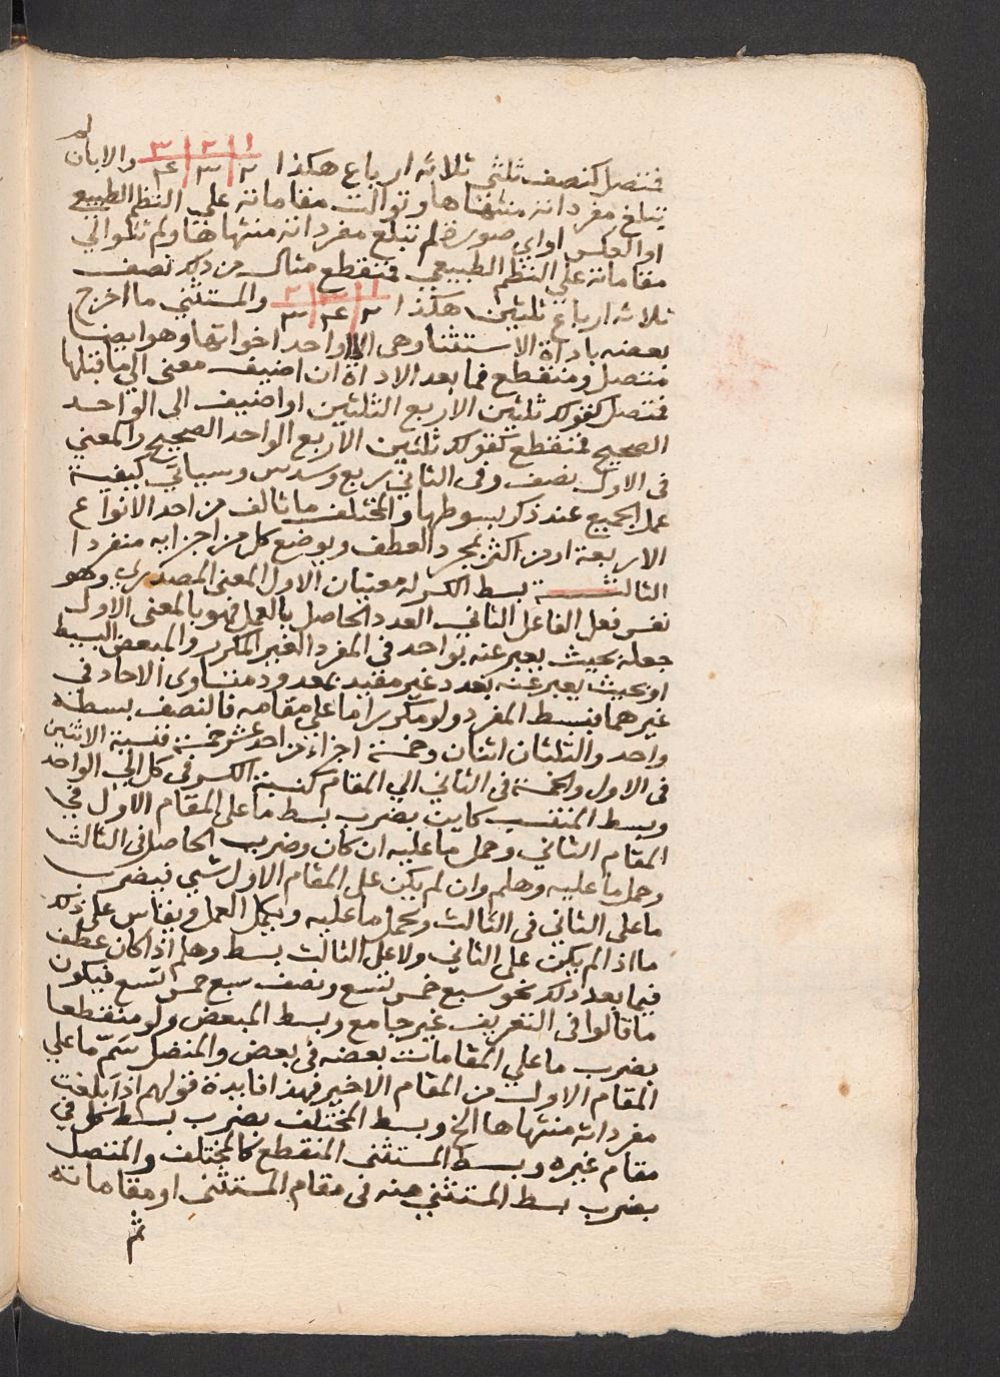 فمتصل كنصف ثلثي ثلاثه ارباع هكذا ١ ٢ ٣ / ٢ ٣ ٤ والابان لم
تبلغ مفرداته منتهاها وتوالت مقاماته على النظم الطبيعي
او العكس او اي صورة لم تبلغ مفرداته منتهاها ولم تتوالي
مقاماته على النظم الطبيعي فمنقطع مثال من ذلك نصف
ثلاثه ارباع ثلثين هكذا ١ ٣ ٢ / ٢ ٤ ٣ والمستثني ما اخرج
بعضه باداة الاستثنا وهي الا واحد اخواتها وهو ايضا
متصل ومنقطع فما بعد الاداة ان اضيف معنى الي ما قبلها
فمتصل كقولك ثلثين الا ربع الثلثين او اضيف الى الواحد
الصحيح فمنقطع كقولك ثلثين الا ربع الواحد الصحيح والمعني
في الاول نصف وفى الثاني ربع وسدس وسياتي كيفية
عمل الجميع عند ذكر بسوطها والمختلف ما تالف من احد الانواع
الاربعة او من اكثر بمجرد العطف ويوضع كل من اجزايه منفردا
الثالثـــة بسط الكسر له معنيان الاول المعني المصدري وهو
نفس فعل الفاعل الثاني العدد الحاصل بالعمل فهو بالمعنى الاول
جعله بحيث يعبر عنه بواحد في المفرد الغير المكرر والمبعض البسيط
او بحيث يعبر عنه بعدد غير مقيد بمعدود متساوى الاحاد في
غيرهما فبسط المفرد ولو مكررا ما على مقامه فالنصف بسطه
واحد والثلثان اثنان وخمسة اجزاء من احد عشر خمسة فنسبة الاثنين
في الاول والخمسة في الثاني الي المقام كنسبة الكسر في كل الي الواحد
وبسط المنتسب كايت بضرب بسط ما على المقام الاول في
المقام الثاني وحمل ما عليه ان كان وضرب الحاصل في الثالث
وحمل ما عليه وهلم وان لم يكن على المقام الاول شي فبضرب
ما على الثاني فى الثالث وتحمل ما عليه ويكمل العمل ويقاس على ذلك
ما اذا لم يكن على الثاني ولا على الثالث بسط وهلم اذا كان عطف
فيما بعد ذلك نحو سبع خمس تسع ونصف سبع خمس تسع فيكون
ما قالوا فى التعريف غير جامع وبسط المبعض ولو منقطعا
بضرب ما علي المقامات بعضه في بعض والمتصل سَمّ ما علي
المقام الاول من المقام الاخير فهذا فايدة قولهم اذا بلغت
مفرداته منتهاها الخ وبسط المختلف بضرب بسط كل في
مقام غيره وبسط المستثنى المنقطع كالمختلف والمتصل
بضرب بسط المستثني منه في مقام المستثنى او مقاماته
ثم